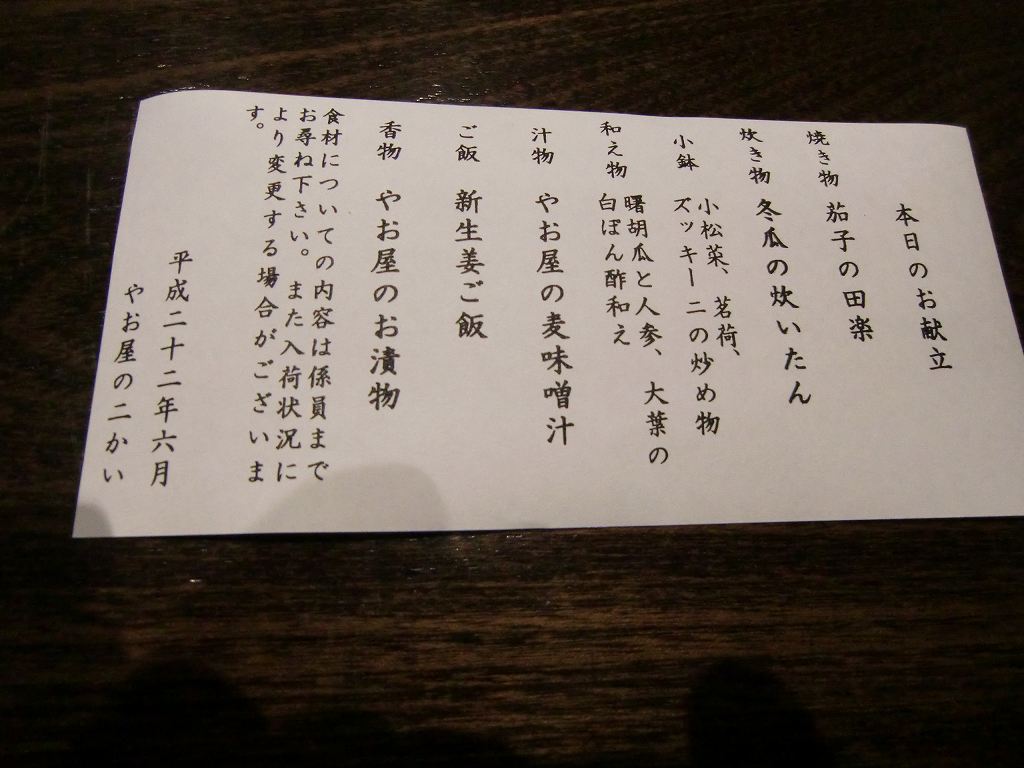 本日のお献立
焼き物 茄子の田楽
炊き物 冬瓜の炊いたん
小鉢 小松菜、茗荷、
ズッキーニの炒め物
和え物 曙胡瓜と人参、大葉の
白ぽん酢和え
汁物 やお屋の麦味噌汁
ご飯 新生姜ご飯
香物 やお屋のお漬物
食材についての内容は係員まで
お尋ね下さい。また入荷状況に
より変更する場合がございま
す。
平成二十二年六月
やお屋の二かい